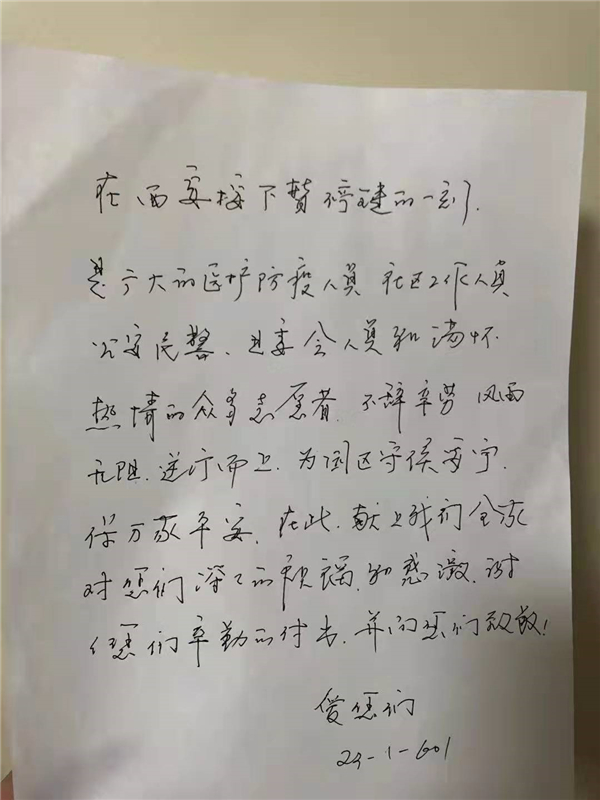 在西安按下暂停键的一刻.
是广大的医护防疫人员 社区工作人员
公安民警、居委会人员和满怀
热情的众多志愿者.不辞辛劳 风雨
无阻.逆行而上.为园区守候安宁.
保万家平安.在此.献上我们全家
对您们深深的祝福.和感激.谢
您们辛勤的付出.并向您们致敬!
爱您们
29-1-601